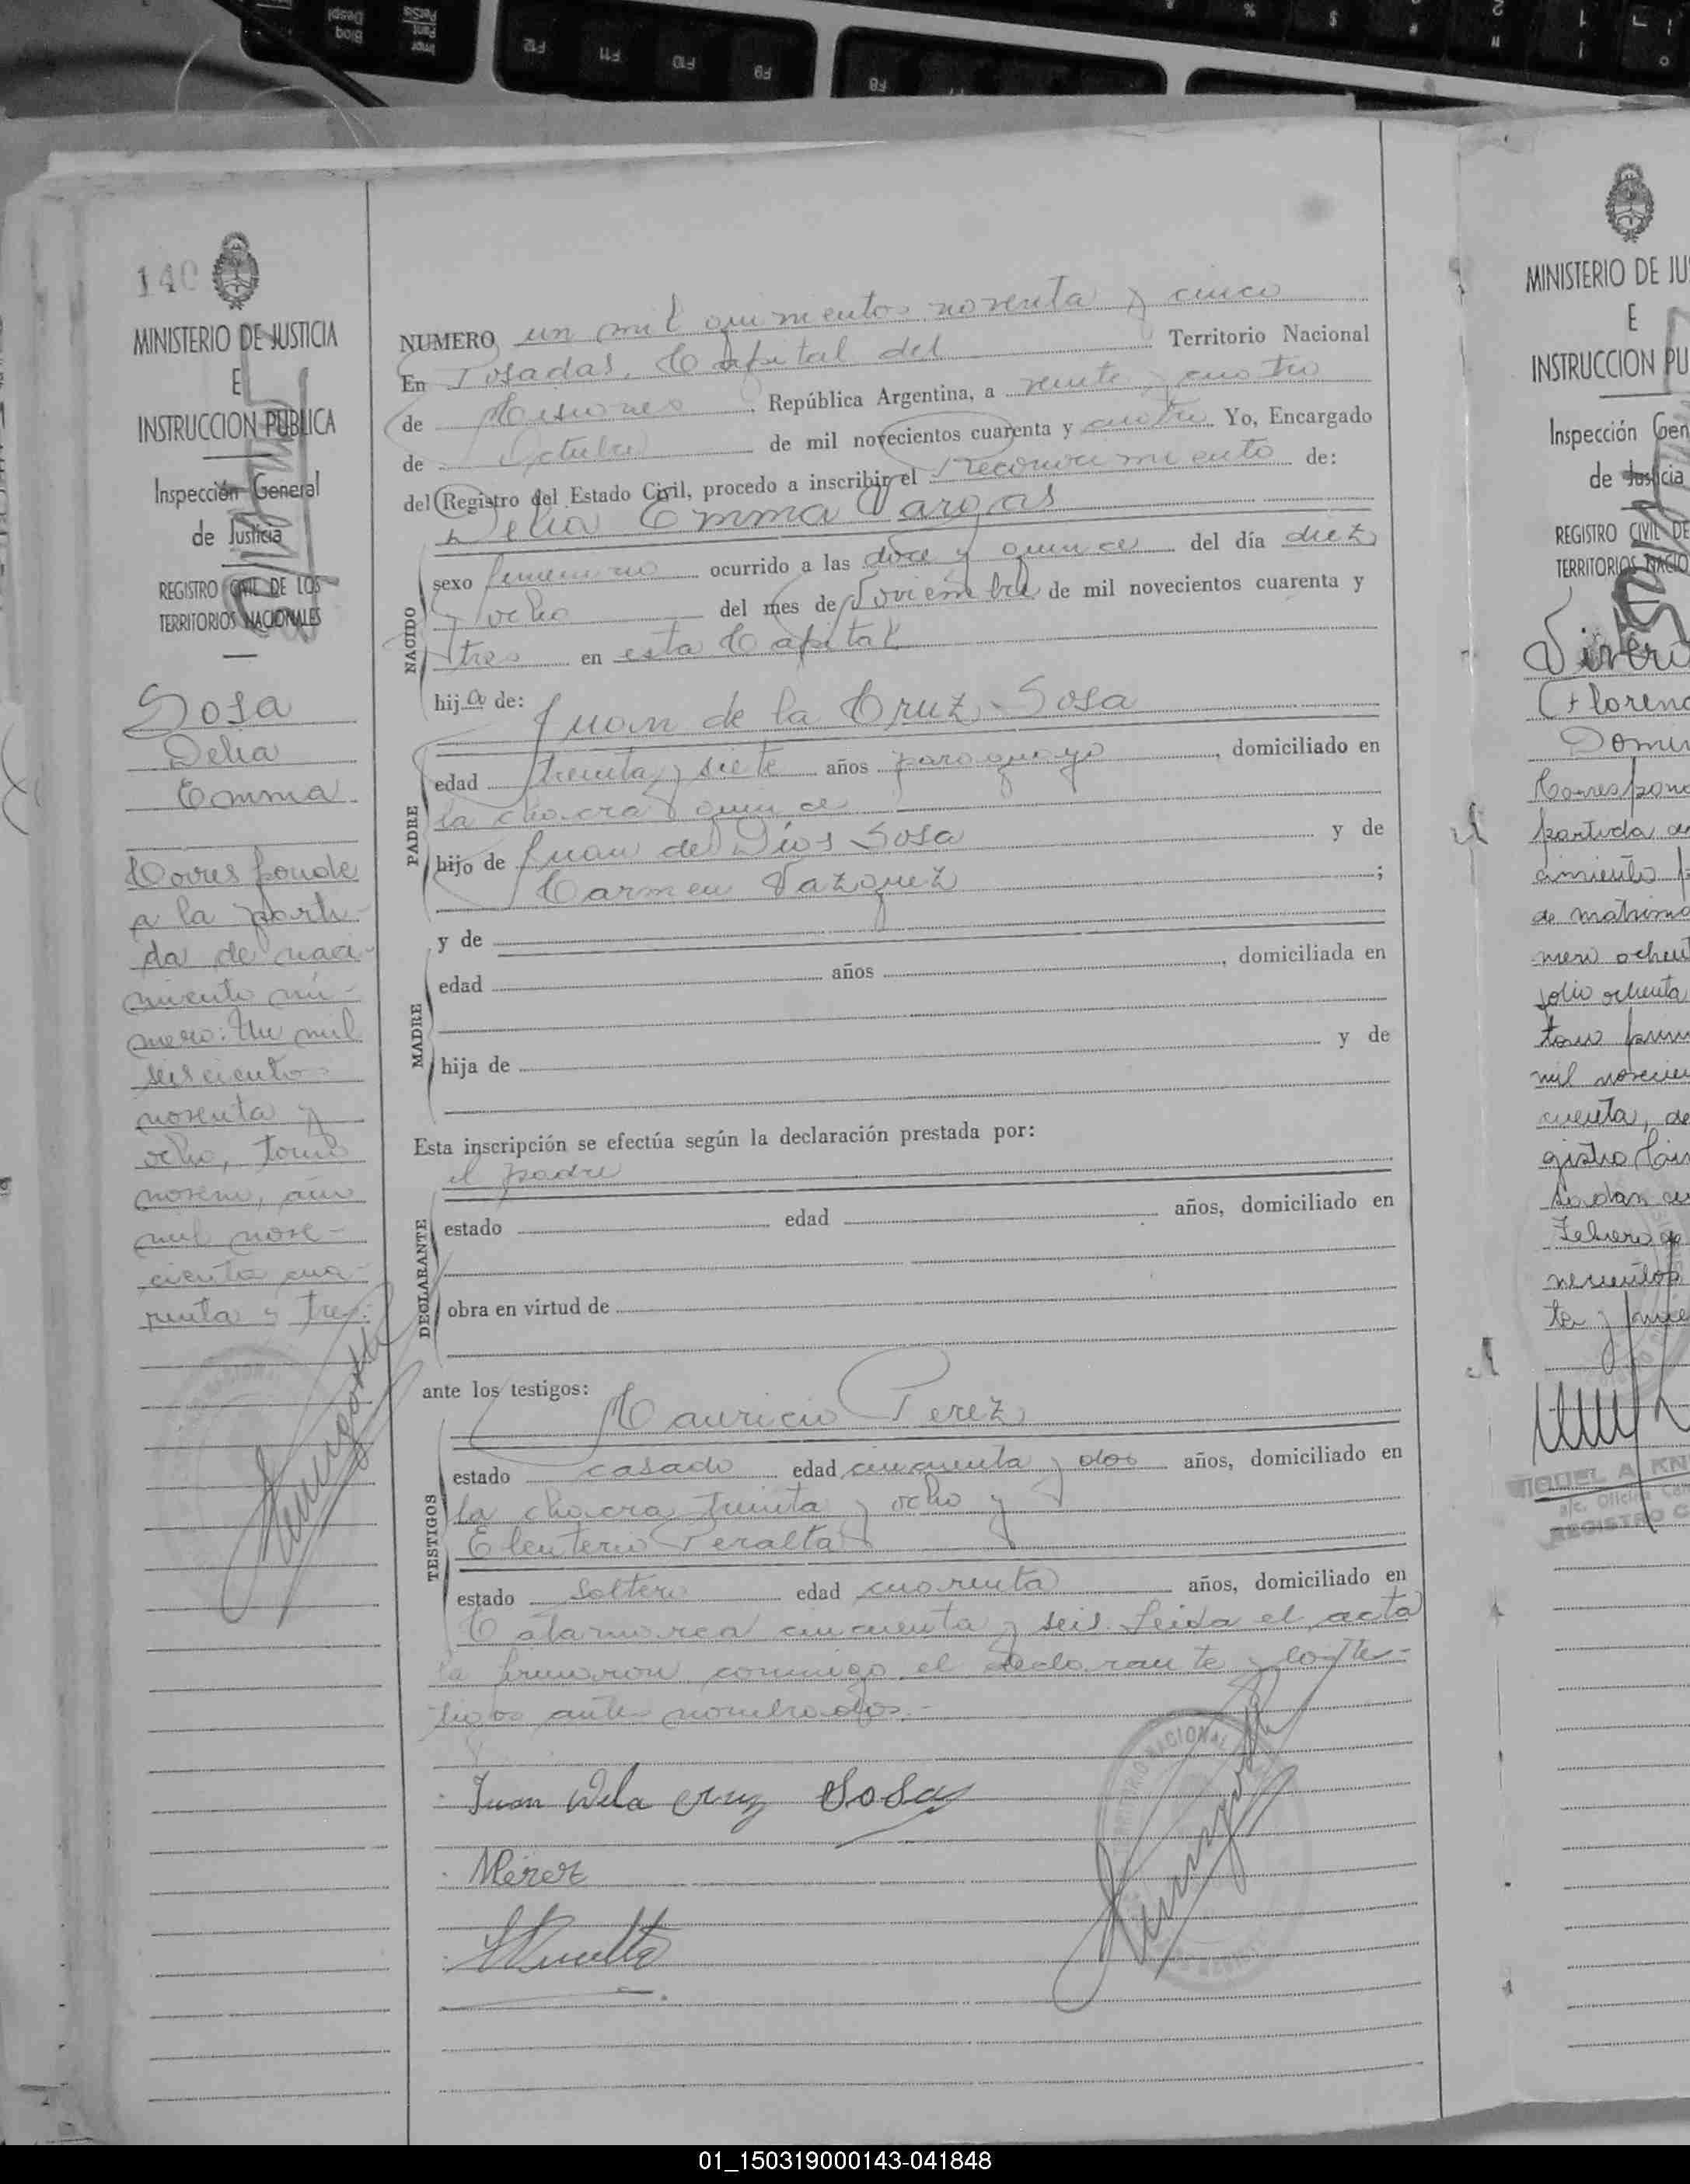 140
MINISTERIO DE JUSTICIA
E
INSTRUCCION PUBLICA
Inspección General
de Justicia
REGISTRO CIVIL DE LOS
TERRITORIOS NACIONALES
Sosa
Delia
Emma
Corresponde
a la parti-
da de naci-
miento nú-
mero: Un mil
seiscientos
noventa y
ocho, tomo
noveno, año
mil nove-
cientos cua-
renta y tres.
NUMERO un mil quinientos noventa y cinco
En Posadas, Capital del Territorio Nacional
de Misiones, República Argentina, a veinte y cuatro
de Octubre de mil novecientos cuarenta y cuatro Yo, Encargado
del Registro del Estado Civil, procedo a inscribir el reconocimiento de:
Delia Emma Vargas
NACIDO
sexo femenino ocurrido a las doce y quince del día diez
y ocho del mes de Noviembre de mil novecientos cuarenta y
tres en esta Capital
hija de:
Juan de la Cruz Sosa
PADRE
edad treinta y siete años paraguayo, domiciliado en
la chacra quince
hijo de Juan de Dios Sosa y de
Carmen Vazquez;
y de
MADRE
edad años, domiciliada en
hija de y de
Esta inscripción se efectúa según la declaración prestada por:
el padre
DECLARANTE
estado edad años, domiciliado en
obra en virtud de
ante los testigos:
Mauricio Perez
TESTIGOS
estado casado edad cincuenta y dos años, domiciliado en
la chacra treinta y ocho y
Eleuterio Peralta
estado soltero edad cuarenta años, domiciliado en
Catamarca cincuenta y seis. Leida el acta
la firmaron conmigo el declarante y los tes-
tigos antes nombrados.-
Juan Dela Cruz Sosa
MPérez
TERRITORIO NACIONAL
MINISTERIO DE JU
E
INSTRUCCION PU
Inspección Gen
de Justicia
REGISTRO CIVIL DE
TERRITORIOS NACIO
Floren
Domin
Correspon
partida de
cimiento
de matrimo
mero ochen
folio ochenta
tomo
mil novecien
cuenta, de
Febrero de
MIGUEL A. KN
REGISTRO C
01_150319000143-041848